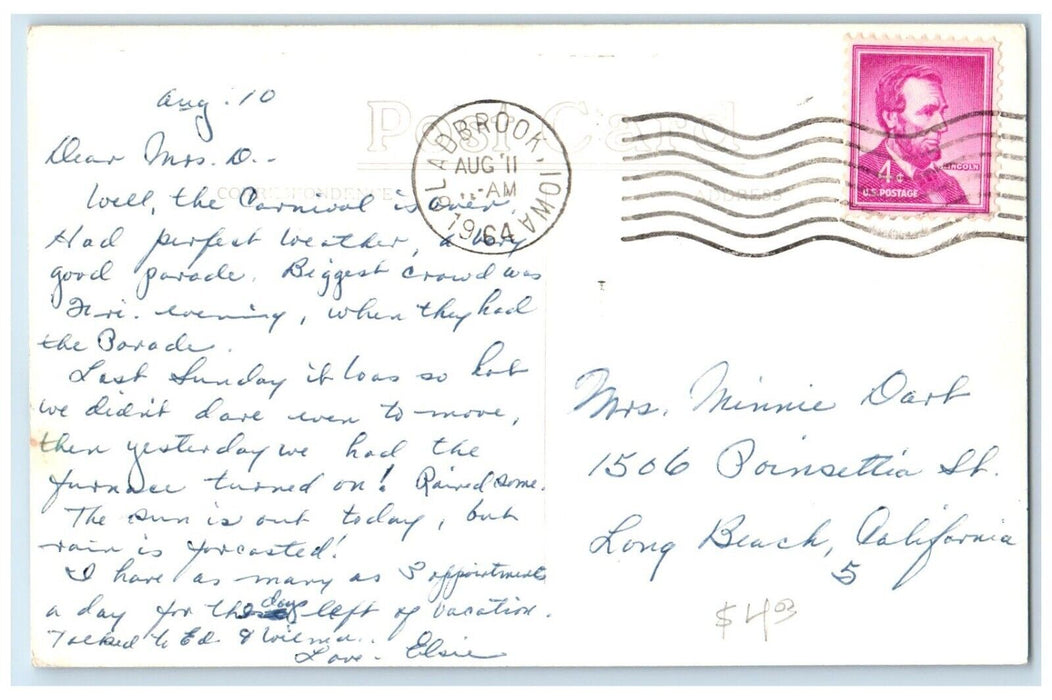 Aug. 10
Post Card
GLADBROOK, IOWA
AUG 11
-AM
1964
4¢
LINCOLN
U.S. POSTAGE
CORRESPONDENCE
ADDRESS
Dear Mrs. D. -
Well, the Carnival is over.
Had perfect weather, a very
good parade. Biggest crowd was
Fri. evening, when they had
the Parade.
Last Sunday it was so hot
we didn't dare even to move,
then yesterday we had the
furnace turned on! Rained some.
The sun is out today, but
rain is forcasted!
I have as many as 3 appointments
a day for the days left of vacation.
Talked to Ed & Wilma.
Love - Elsie
Mrs. Minnie Dart
1506 Poinsettia St.
Long Beach, California
5
$4.03